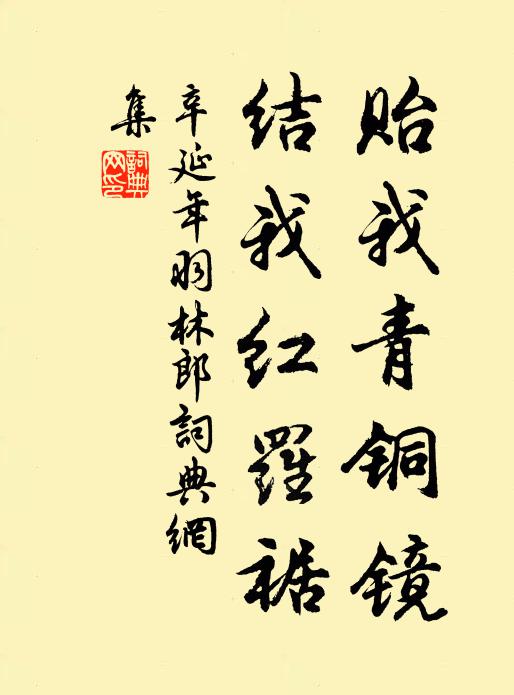 贻我青铜镜
结我红羅裾
辛延年羽林郎詞典網
集
詞典
网印